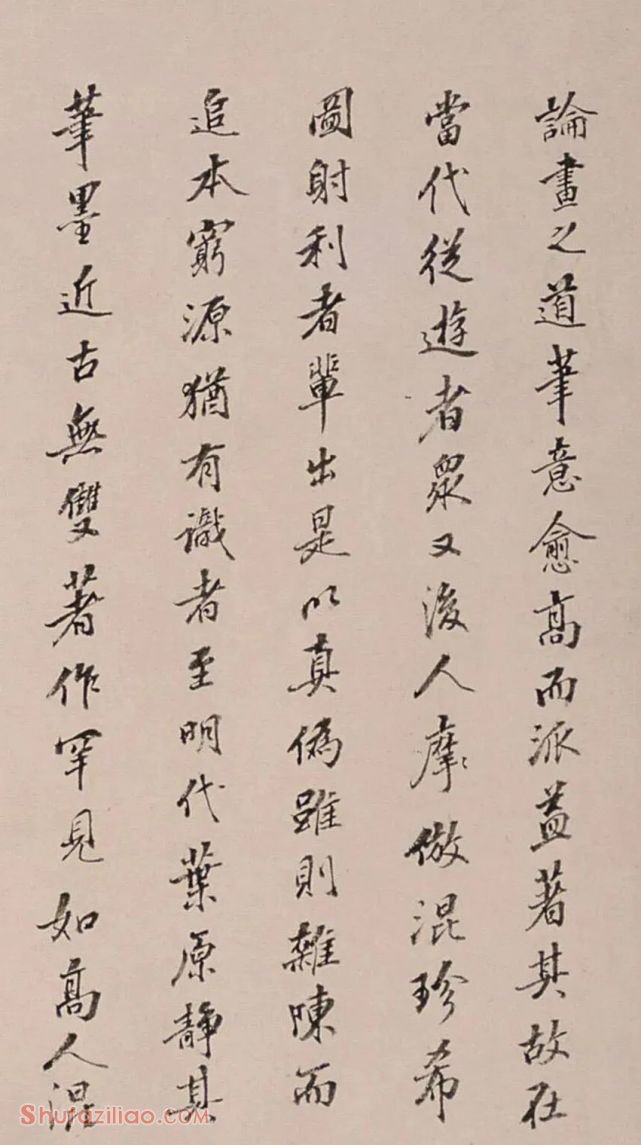 論畫之道筆意愈高而派益著其故在
當代從遊者眾又後人摩倣混珍希
圖射利者輩出是以真偽雖則雜陳而
追本窮源猶有識者至明代葉原靜其
筆墨近古無雙著作罕見如高人混
Shufaziliao.COM